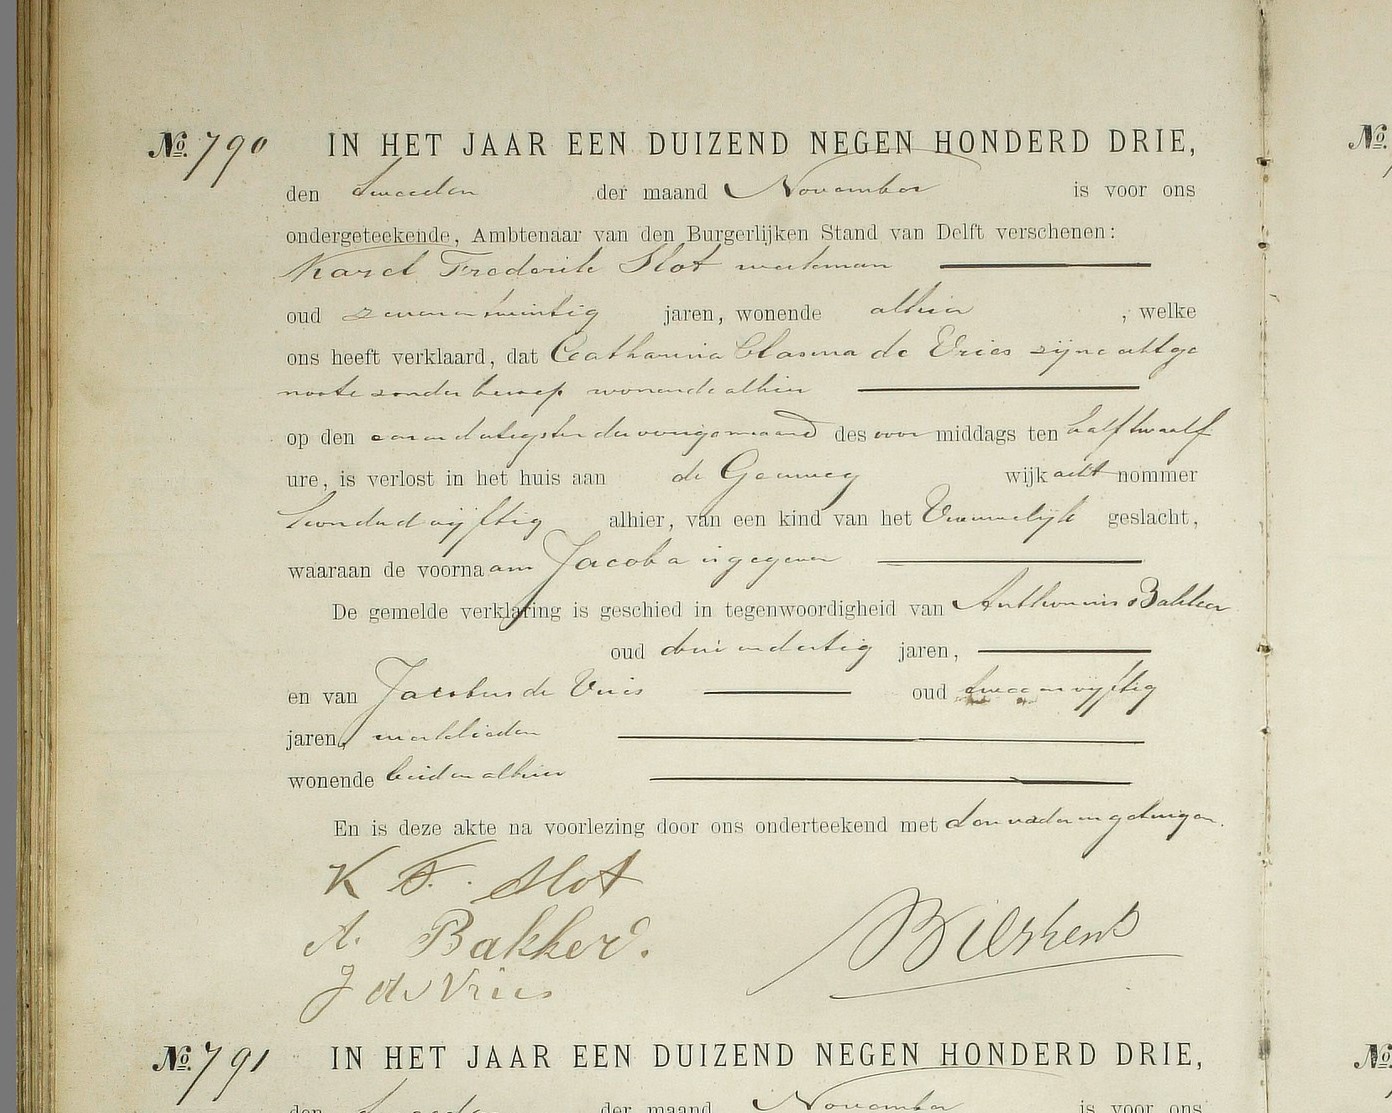 No. 790 IN HET JAAR EEN DUIZEND NEGEN HONDERD DRIE,
den tweeden der maand November is voor ons
ondergeteekende, Ambtenaar van den Burgerlijken Stand van Delft verschenen:
Karel Frederik Slot werkman
oud zevenentwintig jaren, wonende alhier , welke
ons heeft verklaard, dat Catharina Clasina de Vries zijne echtge
noote zonder beroep wonende alhier
op den eenendertigsten der vorige maand des voor middags ten half twaalf
ure, is verlost in het huis aan de Geerweg wijk acht nommer
honderd vijftig alhier, van een kind van het Vrouwelijk geslacht,
waaraan de voornaam Jacoba is gegeven
De gemelde verklaring is geschied in tegenwoordigheid van Anthonius Bakker
oud drieendertig jaren,
en van Jacobus de Vries oud tweeenvijftig
jaren, werklieden
wonende beiden alhier
En is deze akte na voorlezing door ons onderteekend met den vader en getuigen.
K F. Slot
A. Bakker.
J de Vries
No. 791 IN HET JAAR EEN DUIZEND NEGEN HONDERD DRIE,
den tweeden der maand November is voor ons
No.
No.